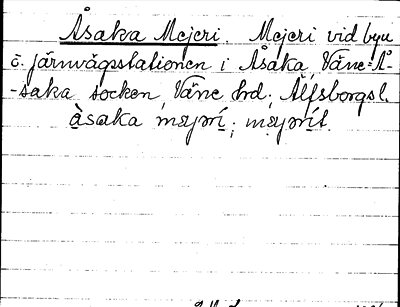 Åsaka Mejeri. Mejeri vid byn
o. järnvägsstationen i Åsaka, Väne-Å-
-saka socken, Väne hrd, Älfsborgs l.
àsaka